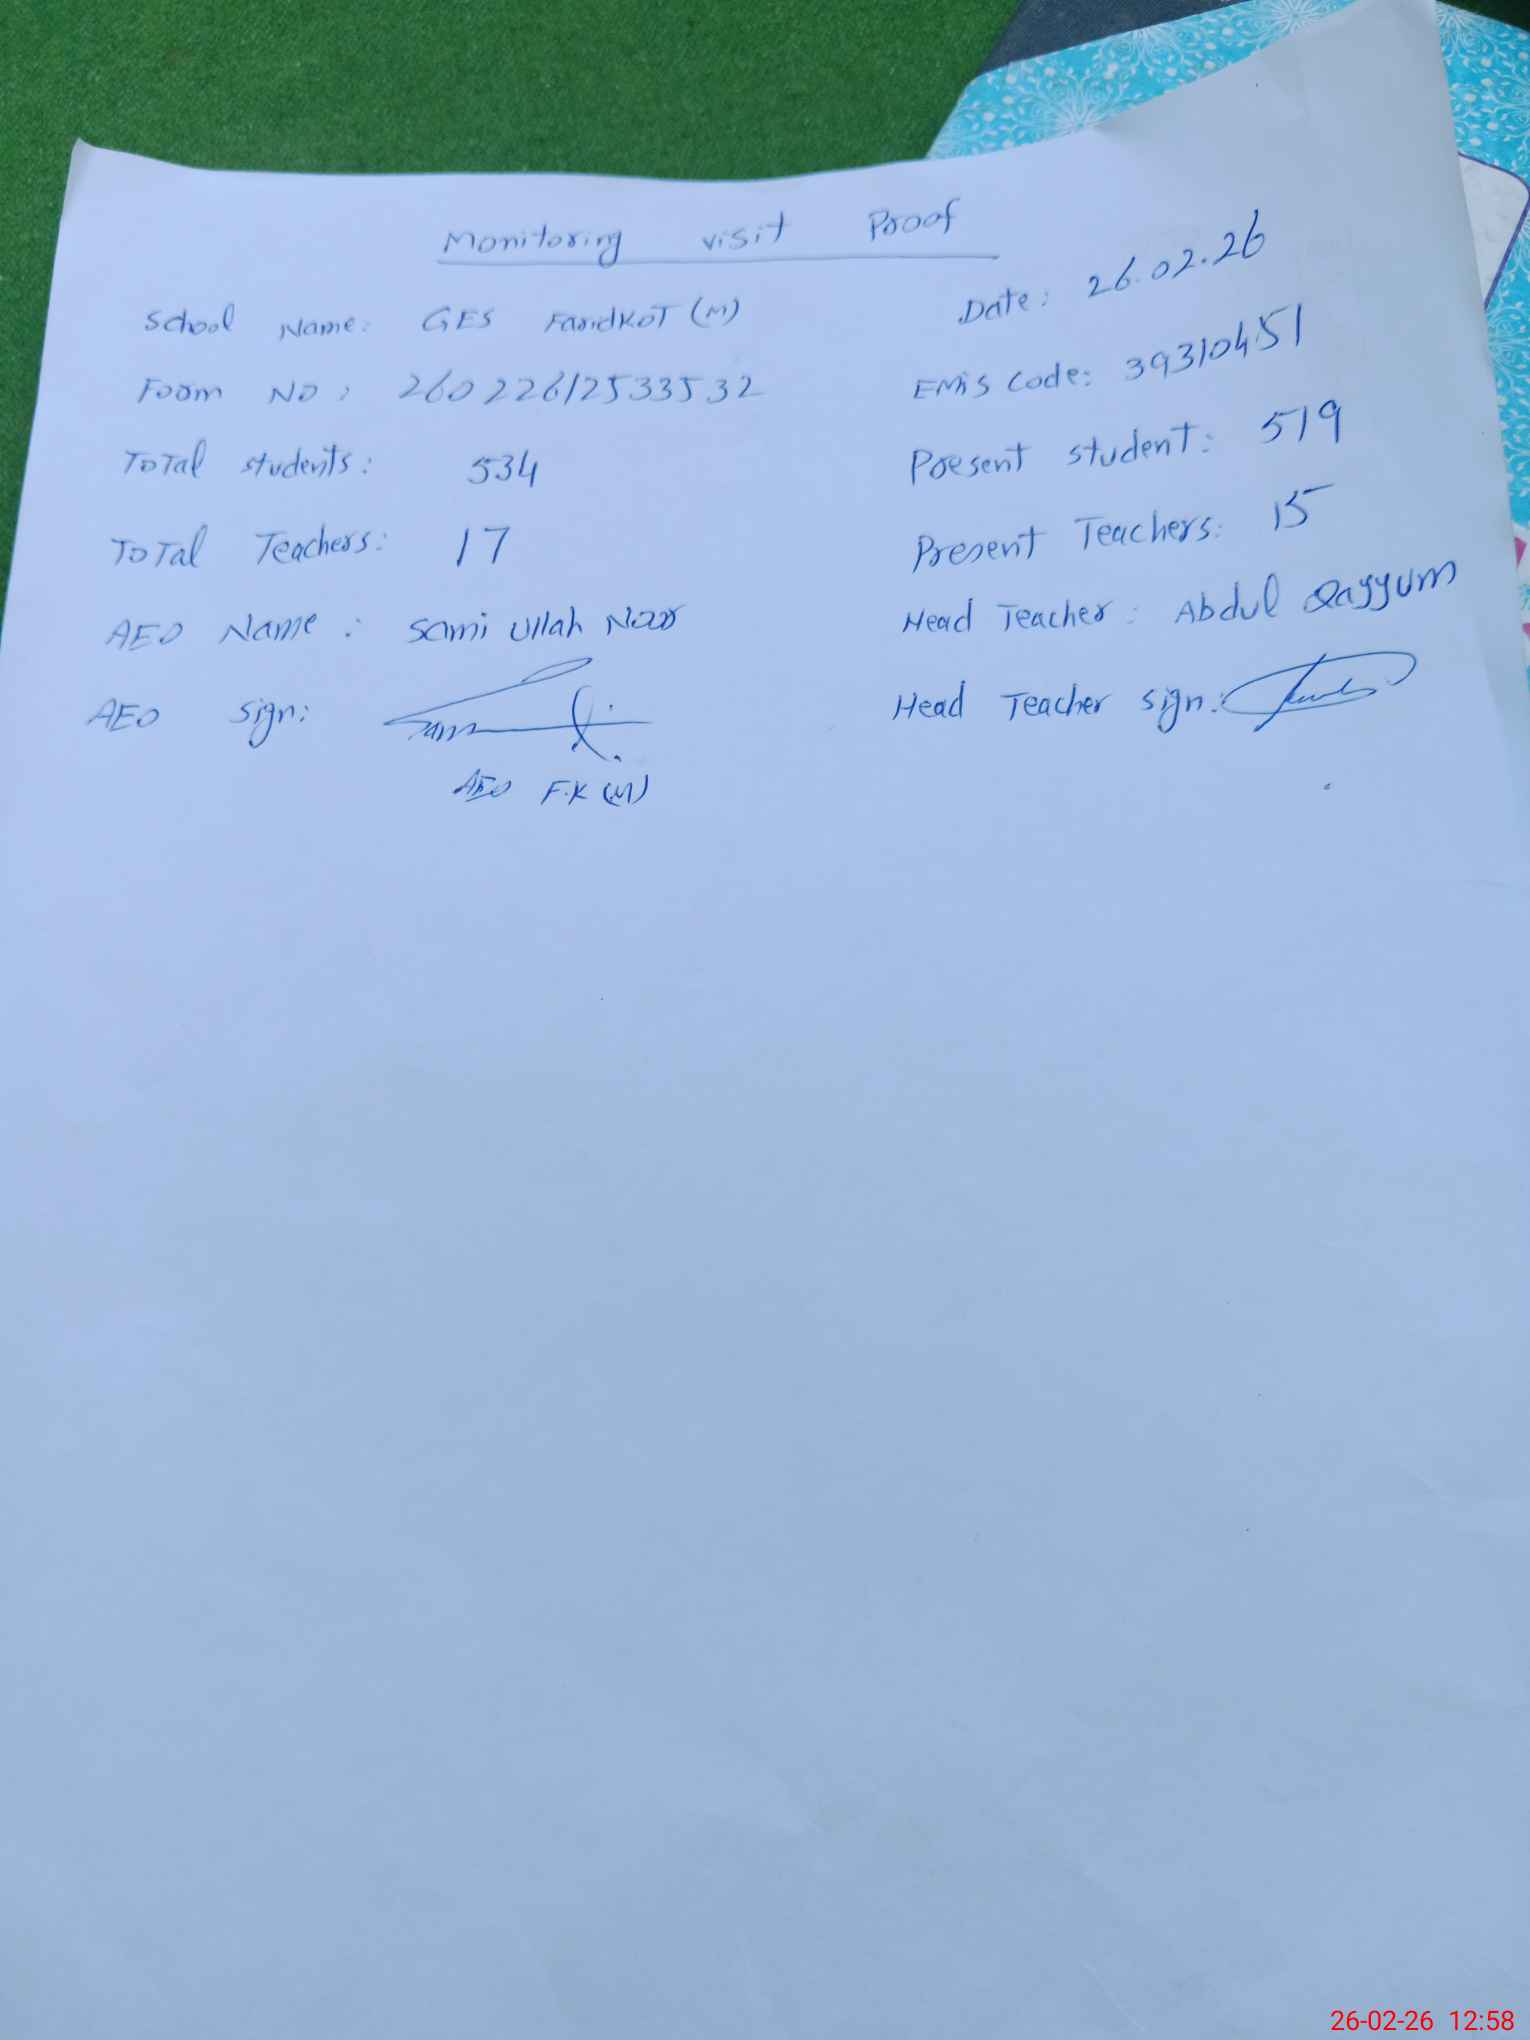 Monitoring visit Proof
School Name: GES FaridKOT (M) Date: 26.02.26
Form No: 260226/2533532 EMIS Code: 39310451
Total Students: 534 Present Student: 519
Total Teachers: 17 Present Teachers: 15
AEO Name: Sami Ullah Noor Head Teacher: Abdul Qayyum
AEO Sign: Head Teacher Sign:
AEO F.K (M)
26-02-26 12:58